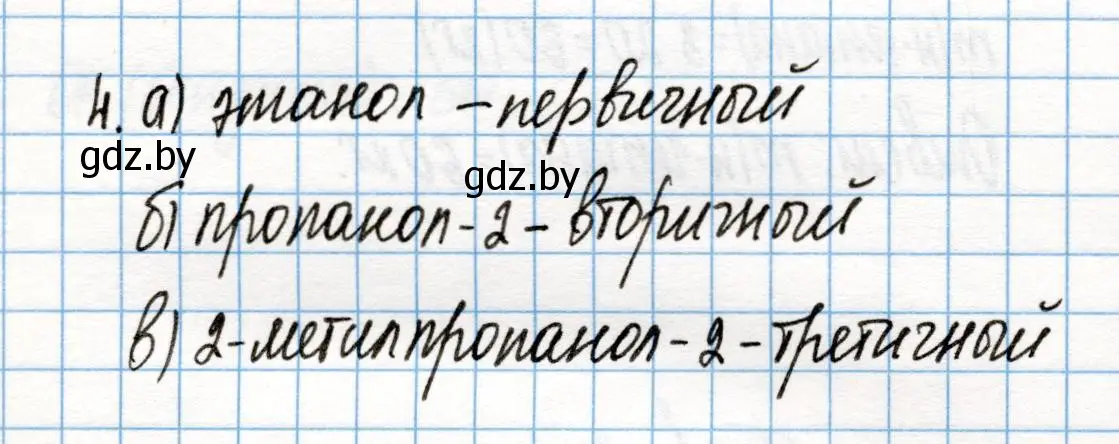 4. а) этанол – первичный
gdz.by
gdz.by
б) пропанол-2 – вторичный
в) 2-метилпропанол-2 – третичный